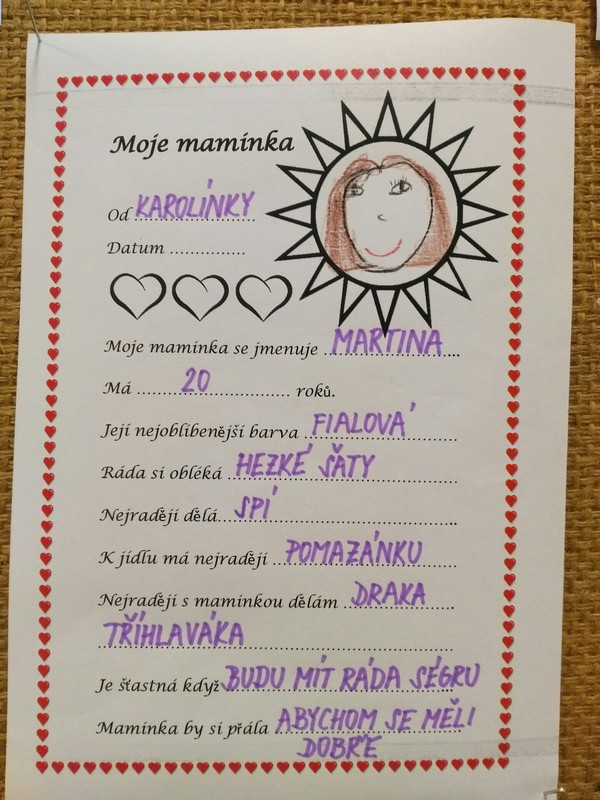 Moje maminka
Od KAROLÍNKY
Datum ...............
Moje maminka se jmenuje MARTINA
Má 20 roků.
Její nejoblíbenější barva FIALOVÁ
Ráda si obléká HEZKÉ ŠATY
Nejraději dělá SPÍ
K jídlu má nejraději POMAZÁNKU
Nejraději s maminkou dělám DRAKA
TŘÍHLAVÁKA
Je šťastná když BUDU MÍT RÁDA SÉGRU
Maminka by si přála ABYCHOM SE MĚLI
DOBŘE